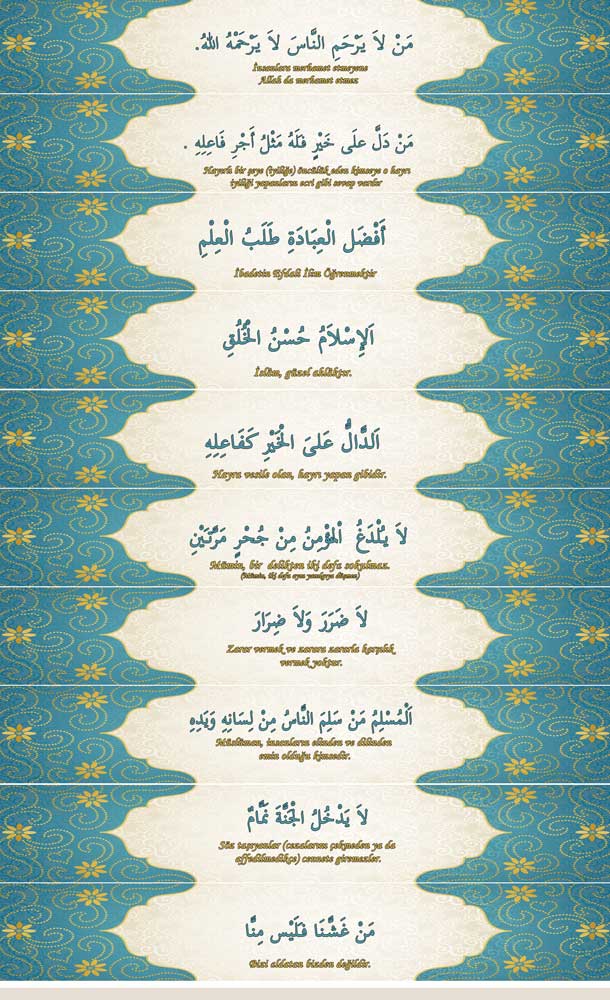 مَنْ لاَ يَرْحَمِ النَّاسَ لاَ يَرْحَمْهُ اللهُ.
İnsanlara merhamet etmeyene
Allah da merhamet etmez
مَنْ دَلَّ علَى خَيْرٍ فلَهُ مَثْلُ أَجْرِ فَاعِلِهِ .
Hayırlı bir şeye (iyiliğe) öncülük eden kimseye o hayrı
iyiliği yapanların ecri gibi sevap vardır
أَفْضَل الْعِبَادَةِ طَلَبُ الْعِلْمِ
İbadetin Efdali İlim Öğrenmektir
اَلإِسْلاَمُ حُسْنُ الخُلُقِ
İslâm, güzel ahlâktır.
اَلدَّالُّ عَلىَ الْخَيْرِ كَفَاعِلِهِ
Hayra vesile olan, hayrı yapan gibidir.
لاَ يُلْدَغُ اْلمُؤْمِنُ مِنْ جُحْرٍ مَرَّتَيْنِ
Mümin, bir delikten iki defa sokulmaz.
(Mümin, iki defa aynı yanılgıya düşmez)
لاَ ضَرَرَ وَلاَ ضِرَارَ
Zarar vermek ve zarara zararla karşılık
vermek yoktur.
اَلْمُسْلِمُ مَنْ سَلِمَ النَّاسُ مِنْ لِسَانِهِ وَيَدِهِ
Müslüman, insanların elinden ve dilinden
emin olduğu kimsedir.
لاَ يَدْخُلُ الْجَنَّةَ نَمَّامٌ
Söz taşıyanlar (cezalarını çekmeden ya da
affedilmedikçe) cennete giremezler.
مَنْ غَشَّنَا فَلَيْس مِنَّا
Bizi aldatan bizden değildir.